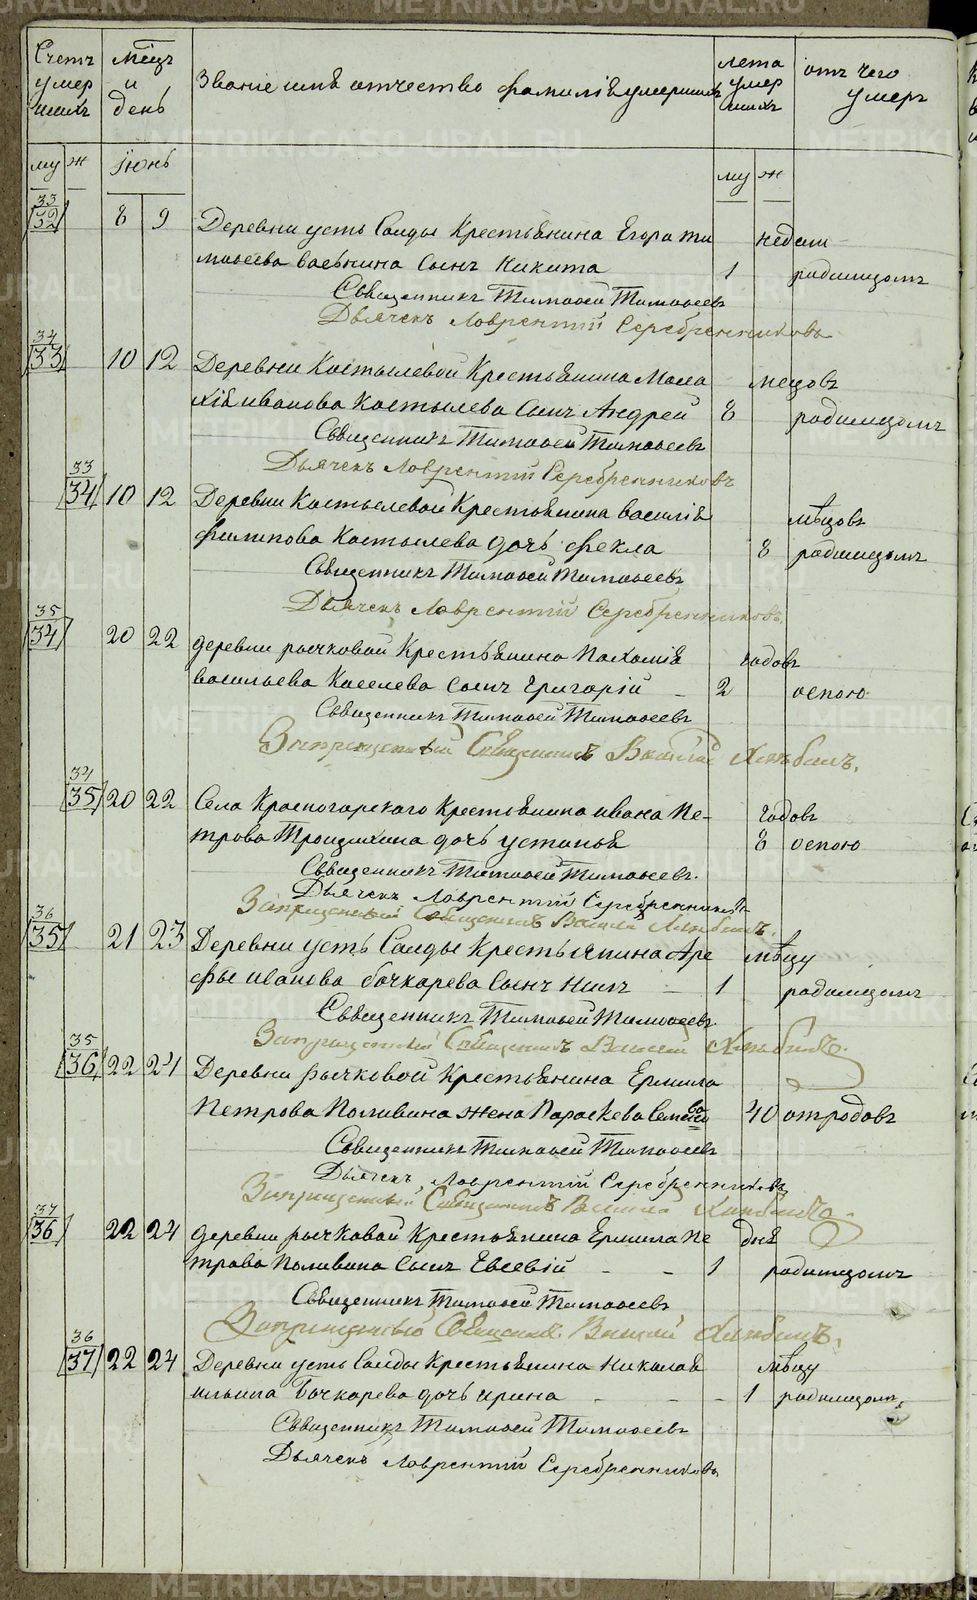 Счетъ умершихъ
мѣцъ и день
Званіе имѣ отчество фамилія умершихъ
лета умершихъ
отъ чего умеръ
му ж
Іюнь
му ж
33
32 8 9 Деревни усть Салды Крестьянина Егора Ти недели
мофеева сынъ Никита 1 родимцомъ
Священникъ Тимофей Тимофеевъ
Дьячекъ Лаврентій Серебренниковъ
34
33 10 12 Деревни Костылевой Крестьянина мецовъ
Иванова Костылева Сынъ Андрей 8 родимцомъ
Священникъ Тимофей Тимофеевъ
Дьячекъ Лаврентій Серебренниковъ
33
34 10 12 Деревни Костылевой Крестьянина василія мѣцовъ
филипова Костылева дочь фекла 8 родимцомъ
Священникъ Тимофей Тимофеевъ
Дьячекъ Лаврентій Серебренниковъ
35
34 20 22 деревни рычковой Крестьянина Пахомія годовъ
васильева Киселева сынъ Григорій 2 оспою
Священникъ Тимофей Тимофеевъ
Запрещенный Священникъ Василій
34
35 20 22 Села Красногорскаго Крестьянина ивана Пе- годовъ
трова дочь устинья 8 оспою
Священникъ Тимофей Тимофеевъ
Дьячекъ Лаврентій Серебренниковъ
Запрещенный Священникъ Василій
36
35 21 23 Деревни усть Салды Крестьянина Аре мѣцу
фьы иванова бочкарева Сынъ Нилъ 1 родимцомъ
Священникъ Тимофей Тимофеевъ
Запрещенный Священникъ Василій
35
36 22 24 Деревни рычковой Крестьянина Ермила
Петрова Поливина жена Параскева 40 отродовъ
Священникъ Тимофей Тимофеевъ
Дьячекъ Лаврентій Серебренниковъ
Запрещенный Священникъ Василій
37
36 22 24 деревни рычковой Крестьянина Ермила Пе дня
трова Поливина сынъ Евсевій 1 родимцомъ
Священникъ Тимофей Тимофеевъ
Запрещенный Священникъ Василій
36
37 22 24 Деревни усть Салды Крестьянина Николая мѣцу
ильина Бочкарева дочь ирина 1 родимцомъ
Священникъ Тимофей Тимофеевъ
Дьячекъ Лаврентій Серебренниковъ
METRIKI.GASO-URAL.RU